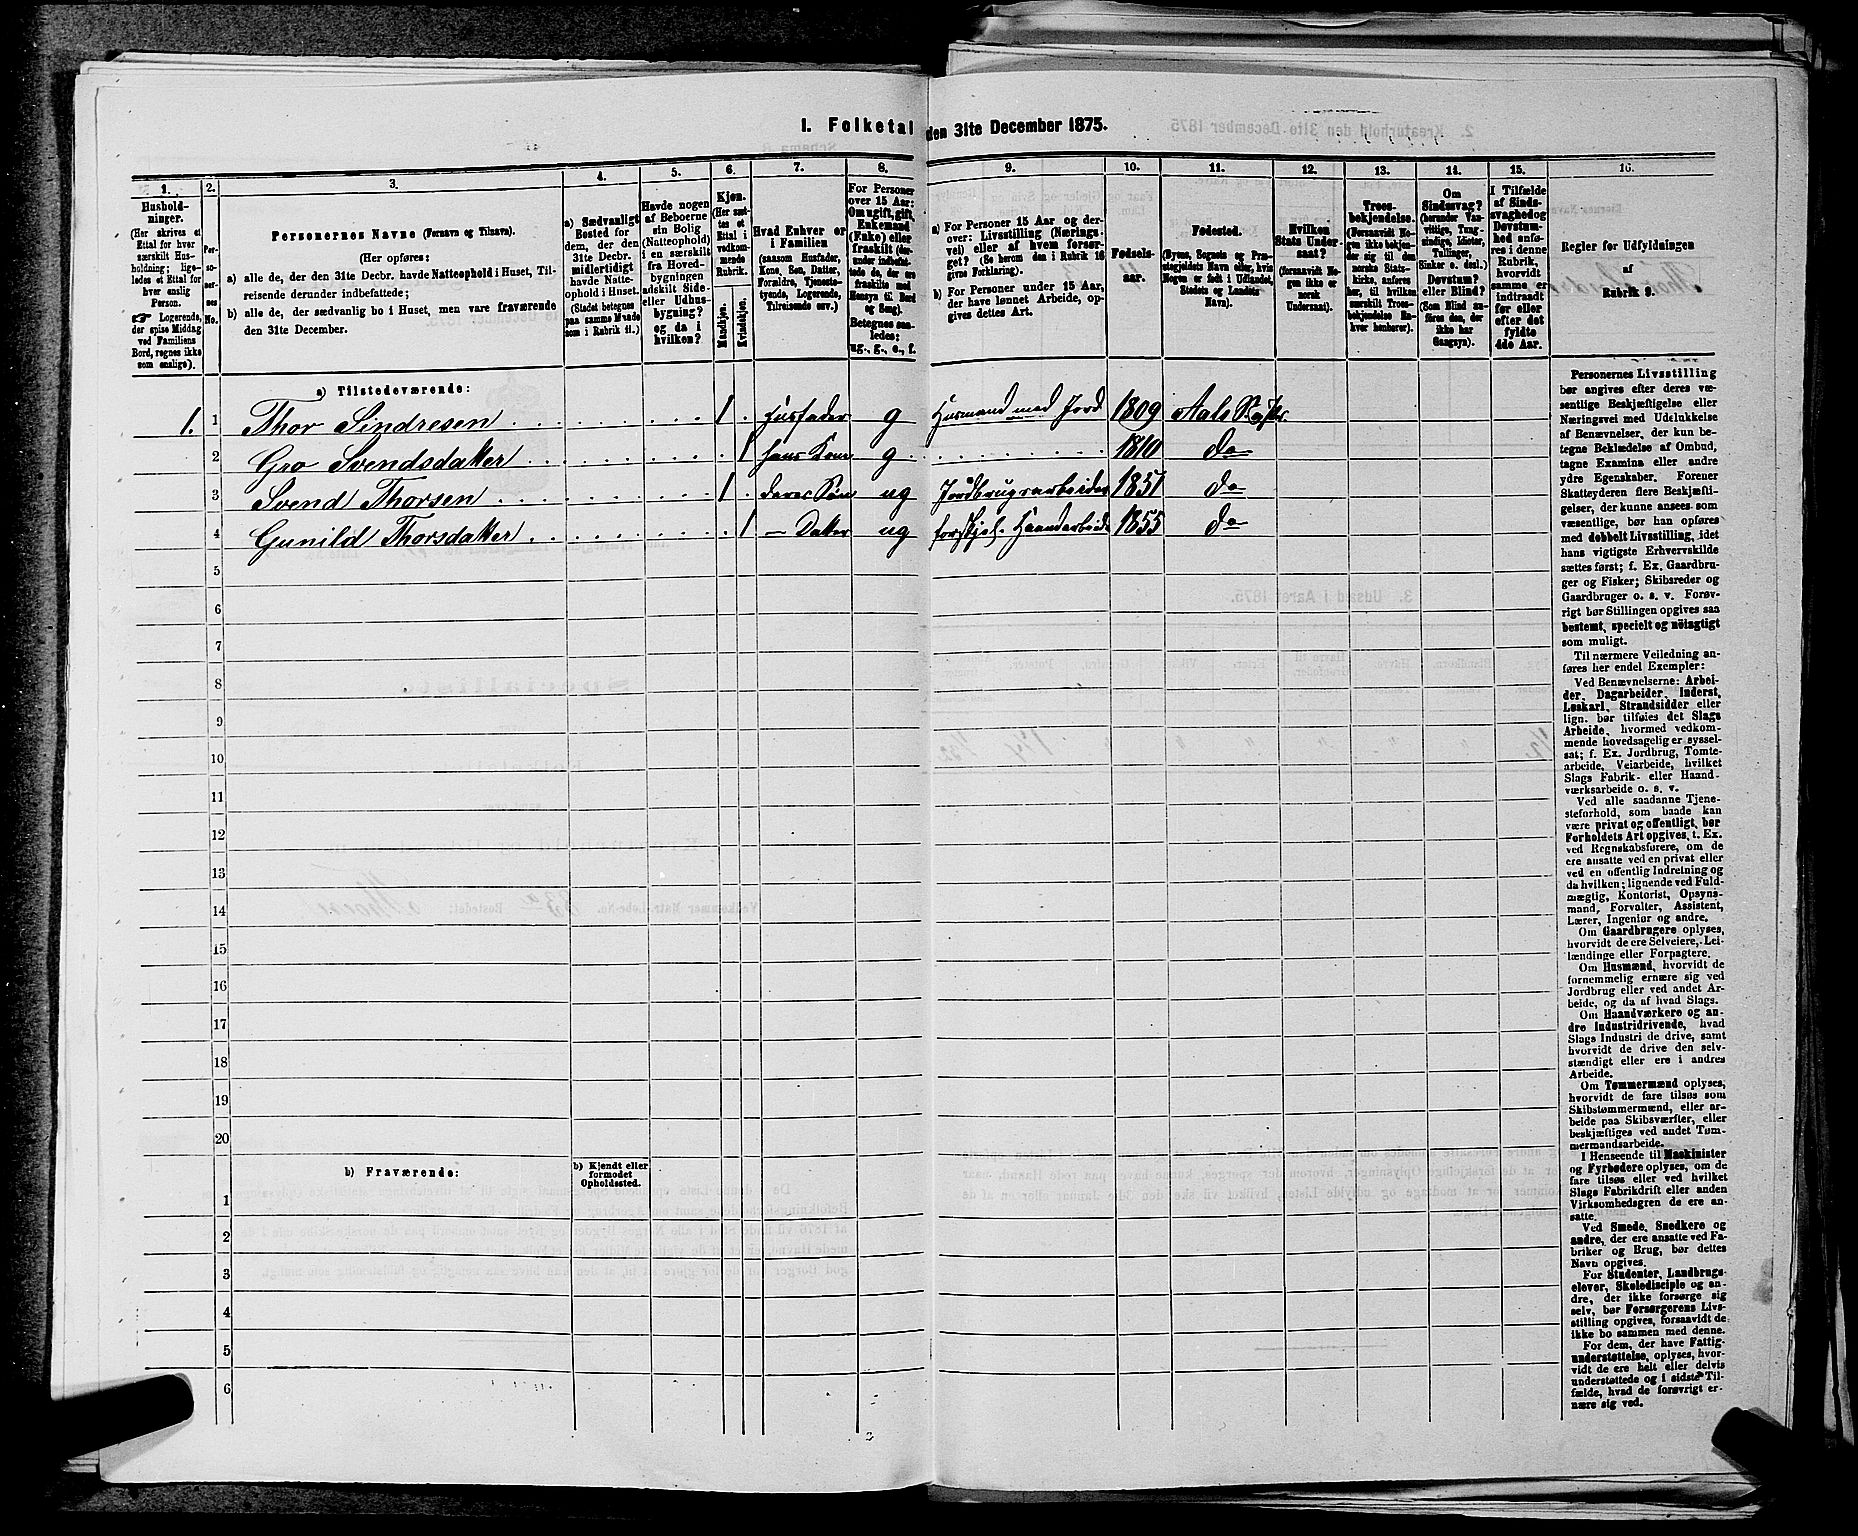 I. Folketal den 31te December 1875.
1. 2. 3. 4. 5. 6. 7. 8. 9. 10. 11. 12. 13. 14. 15. 16.
Hushold-
ninger.
(Her skrives et
Ettal for hver
særskilt Hus-
holdning; lige-
ledes et Ettal for
hver enslig
Person.
☞ Logerende,
der spise Middag
ved Familiens
Bord, regnes ikke
som enslige).
Per-
so-
ner-
nes
No.
Personernes Navne (Fornavn og Tilnavn).
(Her opføres:
a) alle de, der den 31te Decbr. havde Natteophold i Huset, Til-
reisende derunder indbefattede;
b) alle de, der sædvanlig bo i Huset, men vare fraværende
den 31te December.
a) Sædvanligt
Bosted for
dem, der den
31te Decbr.
midlertidigt
havde Natte-
ophold i Huset.
(Stedet betegnes
paa samme Maade
som i Rubrik 11.)
Havde nogen
af Beboerne
sin Bolig
(Natteophold)
i en særskilt
fra Hoved-
bygningen
adskilt Side-
eller Udhus-
bygning?
og da i
hvilken?
Kjøn.
(Her sæt-
tes et
Ettal i
vedkom-
mende
Rubrik.
Mandkjøn.
Kvindekjøn.
Hvad Enhver er
i Familien
(saasom Husfader,
Kone, Søn, Datter,
Forældre, Tjeneste-
tyende, Logerende,
Tilreisende osv.)
For Personer
over 15 Aar:
Om ugift, gift,
Enkemand
(Enke) eller
fraskilt (der-
under indbefat-
tede de, der ere
fraskilte med
Hensyn til Bord
og Seng).
Betegnes saa-
ledes:
ug., g., e., f.
a) For Personer 15 Aar og der-
over: Livsstilling (Nærings-
vei) eller af hvem forsør-
get? (Se herom den i Rubrik 16
givne Forklaring).
b) For Personer under 15 Aar,
der have lønnet Arbeide, op-
gives dettes Art.
Fødsels-
aar.
Fødested.
(Byens, Sognets og Præ-
stegjeldets Navn eller, hvis
Nogen er født i Udlandet,
Stedets og Landets
Navn).
Hvilken
Stats Under-
saat?
(forsaavidt No-
gen ikke er
norsk
Undersaat).
Troes-
bekjendelse.
(Forsaavidt No-
gen ikke bekjen-
der sig til den
norske Stats-
kirke, anføres
her, til hvilken
særskilt Troes-
bekjendelse Ha-
ver henhører).
Om
Sindssvag?
(herunder Van-
vittige, Tung-
sindige, Idioter,
Tullinger,
Sinker o. desl.)
Døvstum?
eller Blind?
(Som Blind an-
føres den, der
ikke har
Gangsyn).
I Tilfælde
af Sinds-
svaghed og
Døvstum-
hed anfø-
res i denne
Rubrik,
hvorvidt
samme er
indtraadt
før eller
efter det
fyldte
4de Aar.
Regler for Udfyldningen
af
Rubrik 9.
a) Tilstedeværende:
1. 1 Thor Sindresen 1 Husfader g Husmand med Jord 1809 Aals Prgj.
2 Gro Svendsdatter 1 hans Kone g 1810 do
3 Svend Thorsen 1 deres Søn ug Jordbrugsarbeider 1851 do
4 Gunild Thorsdatter 1 — Datter ug forskjel. Haandarbeide 1855 do
5
6
7
8
9
10
11
12
13
14
15
16
17
18
19
20
b) Fraværende:
b) Kjendt eller
formodet
Opholdssted.
1
2
3
4
5
6
Personernes Livsstilling
bør angives efter deres væ-
sentlige Beskjæftigelse eller
Næringsvei med Udelukkelse
af Benævnelser, der kun be-
tegne Beklædelse af Ombud,
tagne Examina eller andre
ydre Egenskaber. Forener
Skatteyderen flere Beskjæfti-
gelser, der kunne ansees som
væsentlige, bør han opføres
med dobbelt Livsstilling, idet
hans vigtigste Erhvervskilde
sættes først; f. Ex. Gaardbru-
ger og Fisker; Skibsreder og
Gaardbruger o. s. v. Forøv-
rigt bør Stillingen opgives saa
bestemt, specielt og nöiagtigt
som muligt.
Til nærmere Veiledning an-
føres her endel Exempler:
Ved Benævnelserne: Arbei-
der, Dagarbeider, Inderst,
Løskarl, Strandsidder eller
lign. bør tilføies det Slags
Arbeide, hvormed vedkom-
mende hovedsagelig er syssel-
sat; f. Ex. Jordbrug, Tomte-
arbeide, Veiarbeide, hvilket
Slags Fabrik- eller Haand-
værksarbeide o. s. v.
Ved alle saadanne Tjene-
steforhold, som baade kan
være privat og offentligt, bør
Forholdets Art opgives, t. Ex.
ved Regnskabsførere, om de
ere ansatte ved en privat eller
ved en offentlig Indretning og
da hvilken; lignende ved Fuld-
mægtig, Kontorist, Opsyns-
mand, Forvalter, Assistent,
Lærer, Ingeniør og andre.
Om Gaardbrugere oplyses,
hvorvidt de ere Selveiere, Lei-
lændinge eller Forpagtere.
Om Husmænd, hvorvidt de
fornemmelig ernære sig ved
Jordbrug eller ved andet Ar-
beide, og da af hvad Slags.
Om Haandværkere og an-
dre Industridrivende, hvad
Slags Industri de drive, samt
hvorvidt de drive den selv-
stændigt eller ere i andres
Arbeide.
Om Tømmermænd oplyses,
hvorvidt de fare tilsøs som
Skibstømmermænd, eller ar-
beide paa Skibsværfter, eller
beskjæftiges ved andet Tøm-
mermandsarbeide.
I Henseende til Maskinister
og Fyrbødere oplyses, om de
fare tilsøs eller ved hvilket
Slags Fabrikdrift eller anden
Virksomhedsgren de ere an-
satte.
Ved Smede, Snedkere og
andre, der ere ansatte ved Fa-
briker og Brug, bør dettes
Navn opgives.
For Studenter, Landbrugs-
elever, Skoledisciple og an-
dre, der ikke forsørge sig
selv, bør Forsørgerens Livs-
stilling opgives, forsaavidt de
ikke bo sammen med denne.
For dem, der have Fattig-
understøttelse, oplyses, hvor-
vidt de ere helt eller delvis
understøttede og i sidste Til-
fælde, hvad de forøvrigt er-
nære sig ved.